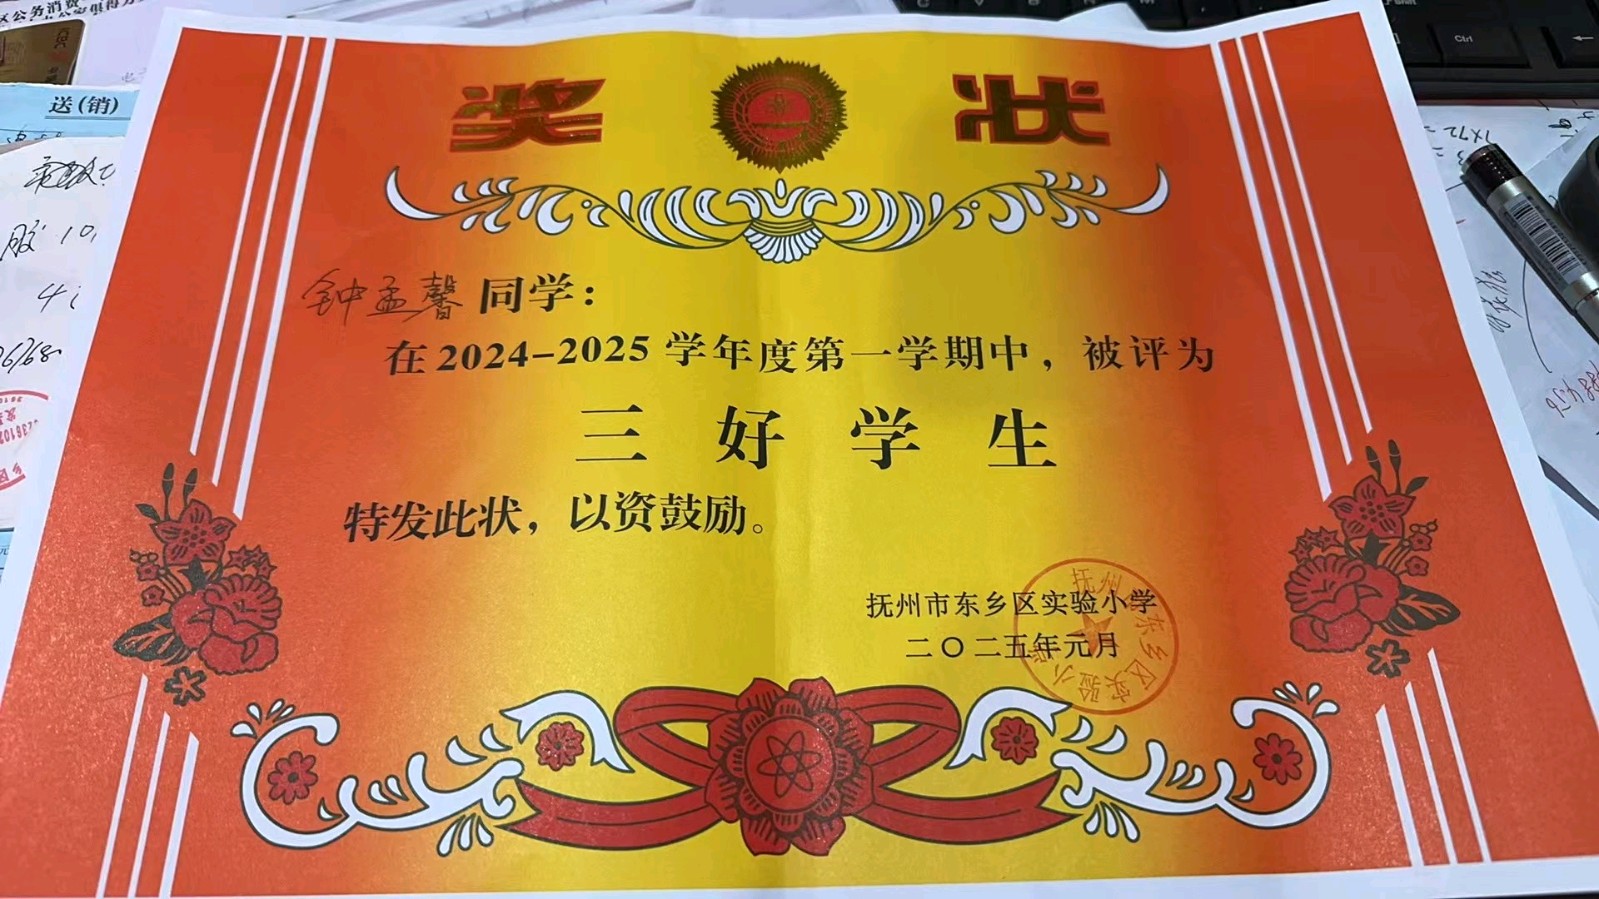 奖状
钟孟馨同学：
在2024-2025学年度第一学期中，被评为
三好学生
特发此状，以资鼓励。
抚州市东乡区实验小学
二〇二五年元月
送(销)
区公务消费
Ctrl